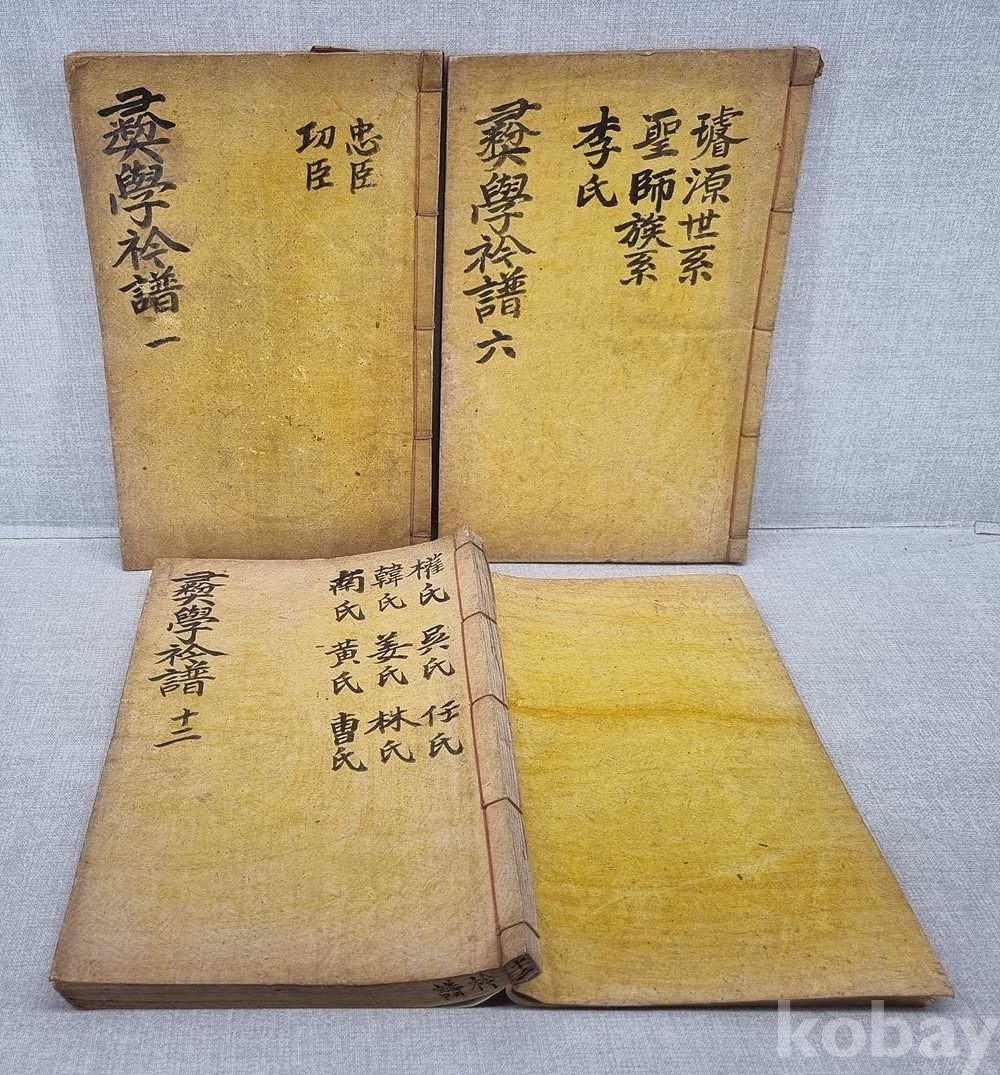 忠臣
功臣
彛學衿譜 一
璿源世系
聖師族系
李氏
彛學衿譜 六
權氏 吳氏 任氏
韓氏 姜氏 林氏
南氏 黃氏 曺氏
彛學衿譜 十二
十二
衿譜
kobay